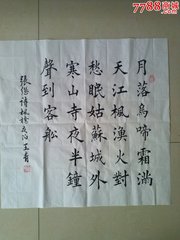 7788商城
月落烏啼霜滿
天江楓漁火對
愁眠姑蘇城外
寒山寺夜半鐘
聲到客船
張継詩楓橋夜泊